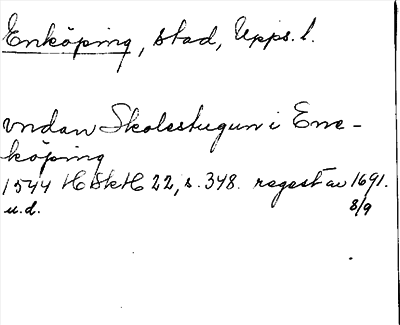 Enköping, stad, Upps. l.
vndan Skolestugun i Ene-
köping
1544 HSkH 22, s. 348. regest av 1691.
u.d. 8/9